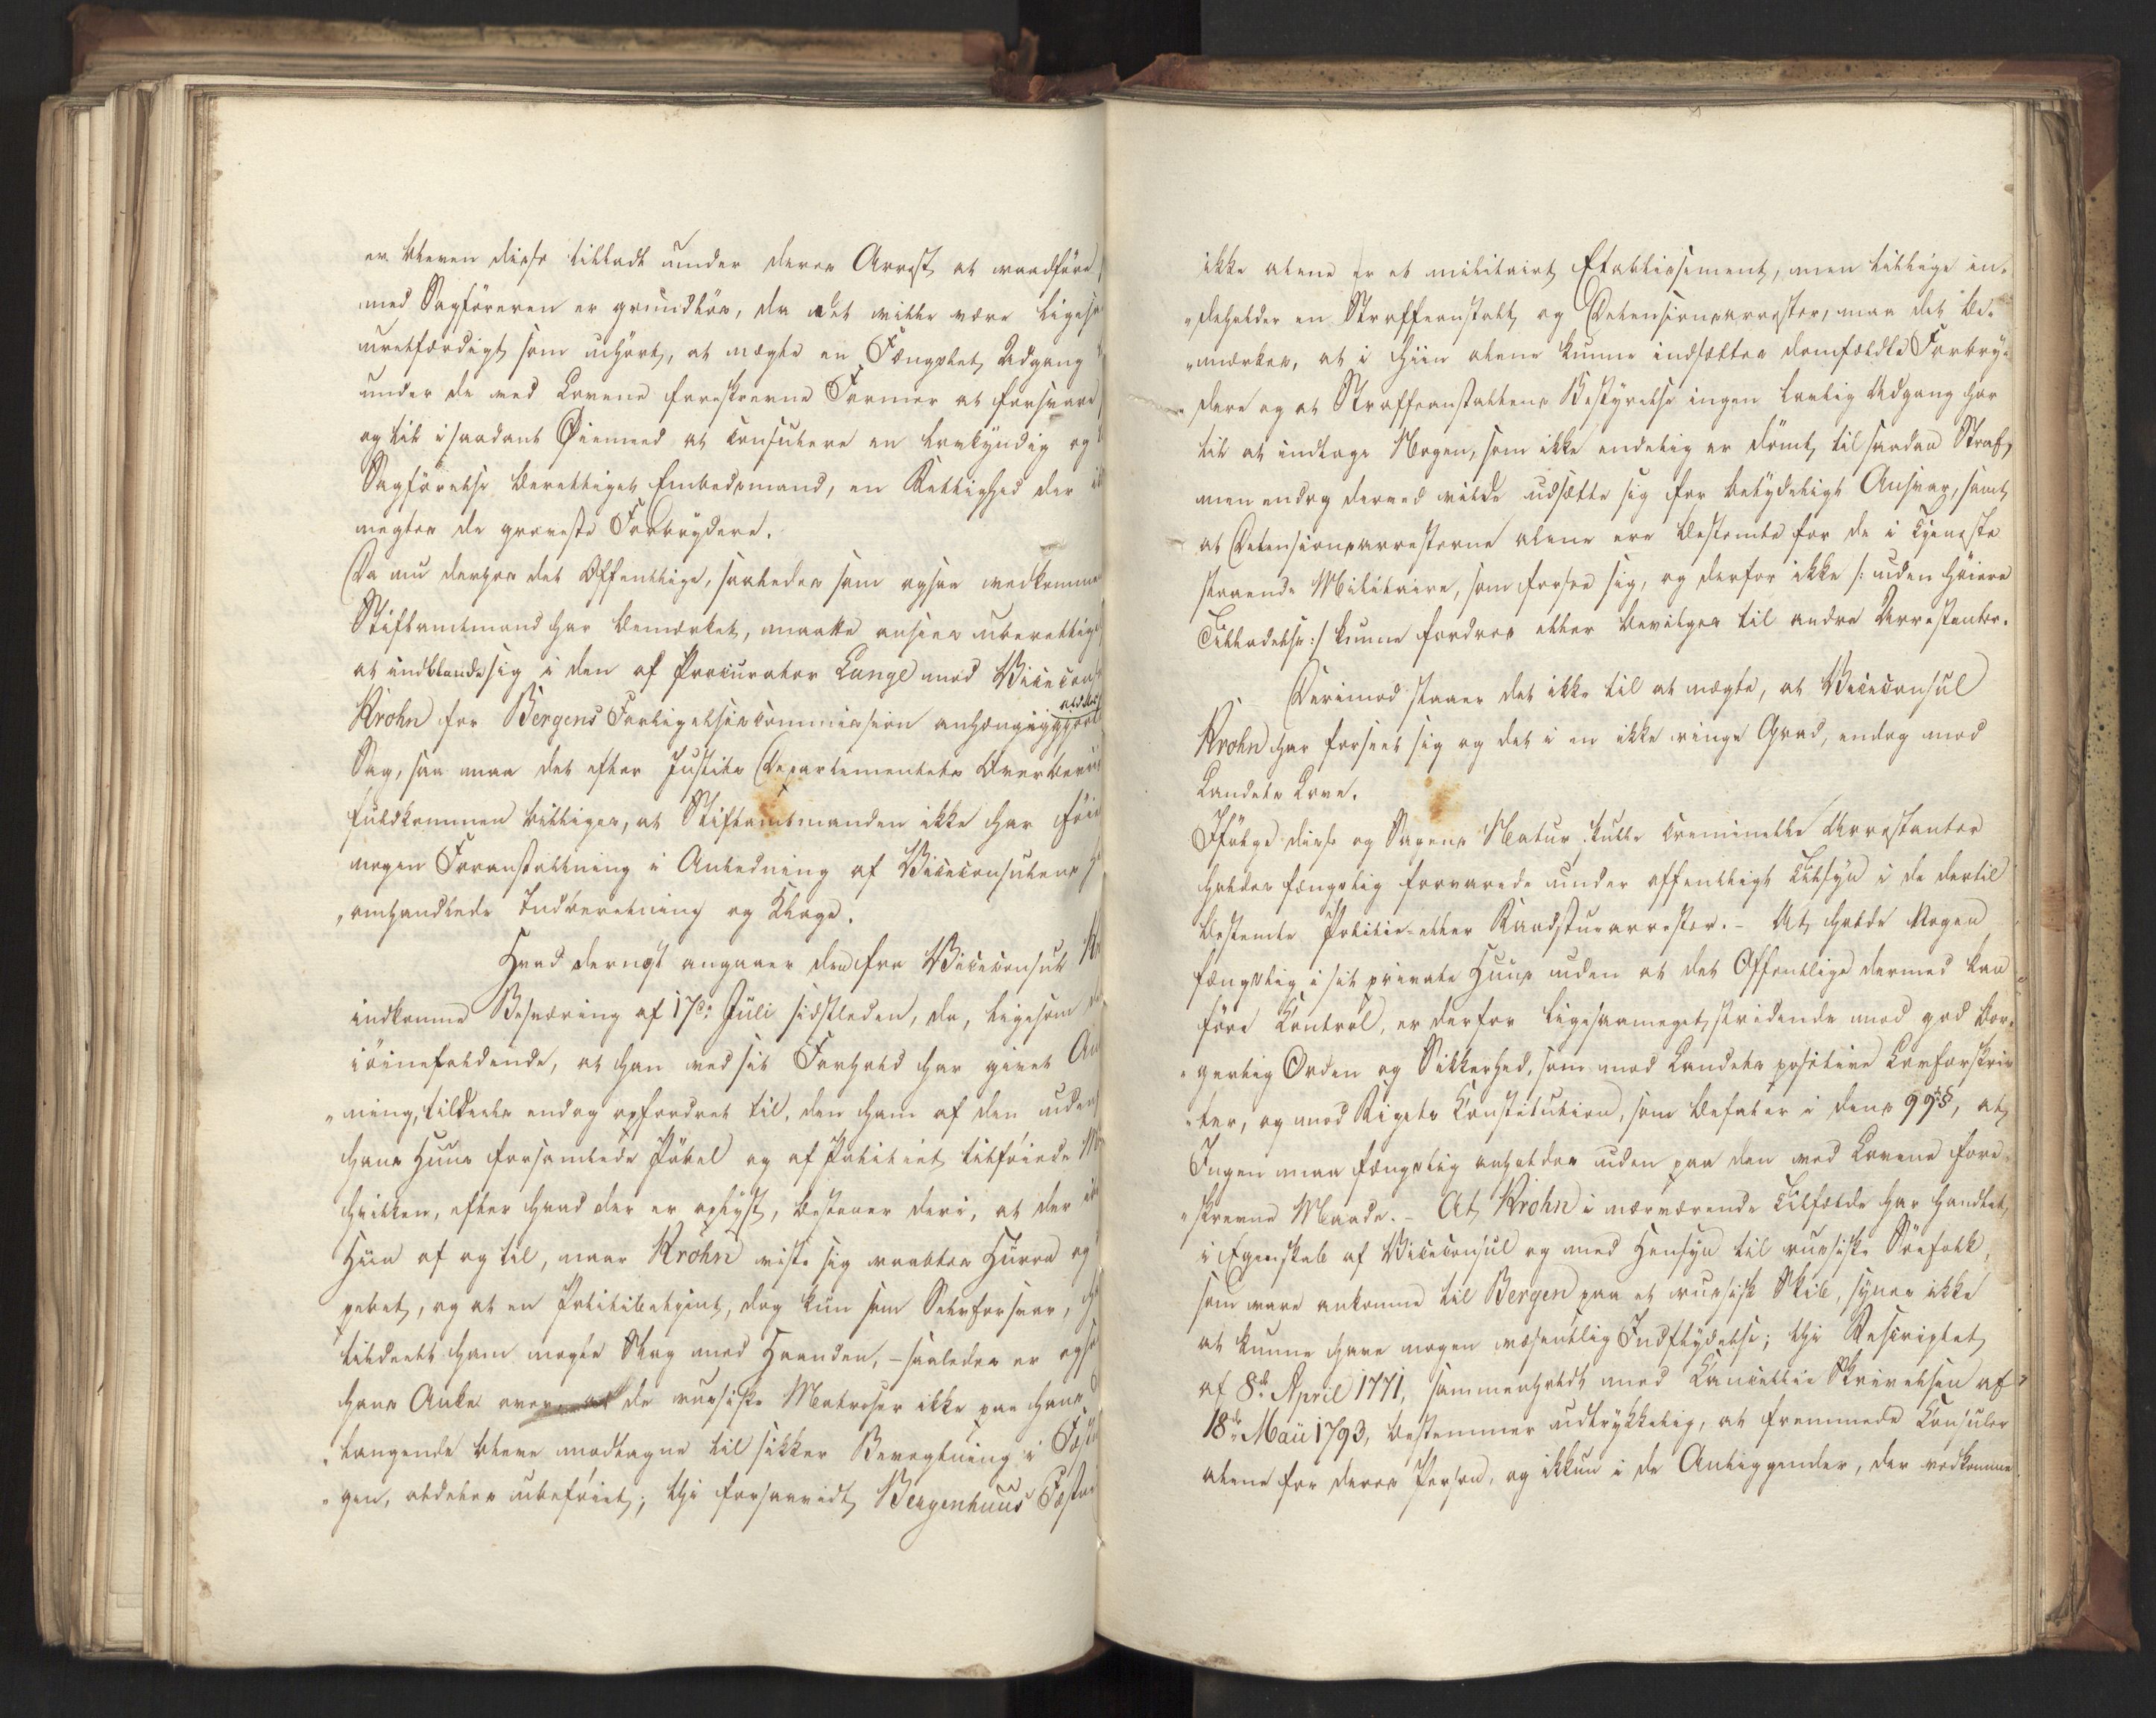 er bleven disse tilladt under deres Arrest at raadføre
med Sagføreren er grundløs, da det vilde være ligesaa
uretfærdigt som uhørt, at nægte en Fængslet Adgang
under de ved Lovene foreskrevne Former at forsvare
og til i saadant Øiemed at consulere en lovkyndig og
Sagførelse berettiget Embedsmand, en Rettighed der
negtes de groveste Forbrydere.
Da nu derhos det Offentlige, saaledes som ogsaa vedkomme
Stiftamtmand har bemærket, maatte ansees uberettiget
at indblande sig i den af Procurator Lange mod Vicecons
Krohn for Bergens Forligelsescommission anhængiggjorte
Sag, saa maa det efter Justits Departementets Overbeviis
fuldkommen billiges, at Stiftamtmanden ikke har føiet
nogen Foranstaltning i Anledning af Viceconsulens
„omhandlede Indberetning og Klage.
Hvad dernæst angaaer den fra Viceconsul Kr
indkomne Besværing af 17de Juli sidstleden, da, ligesom
iøinefaldende, at han ved sit Forhold har givet An
„ning, tildeels endog opfordret til, den ham af den uden
hans Huus forsamlede Pöbel og af Politiet tilføiede
hvilken, efter hvad der er oplyst, bestaaer deri, at der
Hiin af og til, naar Krohn viste sig raabtes Hurra og
pebet, og at en Politibetjent, dog kun som Selvforsvar,
tildeelt ham nogle Slag med Haanden, – saaledes er ogsaa
hans Anke over, at de russiske Matroser ikke paa hans
„langende bleve modtagne til sikker Bevogtning i Fæst
„gen, aldeles ubeføiet; thi forsaavidt Bergenhuus Fæstn
ikke alene er et militairt Etablissement, men tillige in„
„deholder en Straffeanstalt og Detensionsarrester, maa det be„
„mærkes, at i hiin alene kunne indsættes domfældte Forbry„
„dere og at Straffeanstaltens Bestyrelse ingen lovlig Adgang har
til at indtage Nogen, som ikke endelig er dömt til saadan Straf,
men endog derved vilde udsætte sig for betydeligt Ansvar, samt
at Detensionsarresterne alene ere bestemte for de i Tjeneste
staaende Militaire, som forsee sig, og derfor ikke /: uden høiere
Tilladelse :/ kunne fordres eller bevilges til andre Arrestanter.
Derimod staaer det ikke til at nægte, at Viceconsul
Krohn har forseet sig og det i en ikke ringe Grad, endog mod
Landets Love.
Ifølge disse og Sagens Natur skulle criminelle Arrestanter
holdes fængslig forvarede under offentligt Tilsyn i de dertil
bestemte Politie- eller Raadstuearrester. – At holde Nogen
fængslig i sit private Huus uden at det Offentlige dermed kan
føre Kontrol, er derfor ligesaameget stridende mod god bor„
„gerlig Orden og Sikkerhed, som mod Landets positive Lovforskrif
„ter, og mod Rigets Constitution, som befaler i dens 99de §, at
Ingen maa fængslig anholdes uden paa den ved Lovene fore„
„skrevne Maade. – At Krohn i nærværende Tilfælde har handlet
i Egenskab af Viceconsul og med Hensyn til russiske Söefolk,
som vare ankomne til Bergen paa et russisk Skib, synes ikke
at kunne have nogen væsentlig Indflydelse; thi Rescriptet
af 8de April 1771, sammenholdt med Cancellie Skrivelsen af
18de Maii 1793, bestemmer udtrykkelig, at fremmede Consuler
alene for deres Person, og ikkun i de Anliggender, der vedkomme